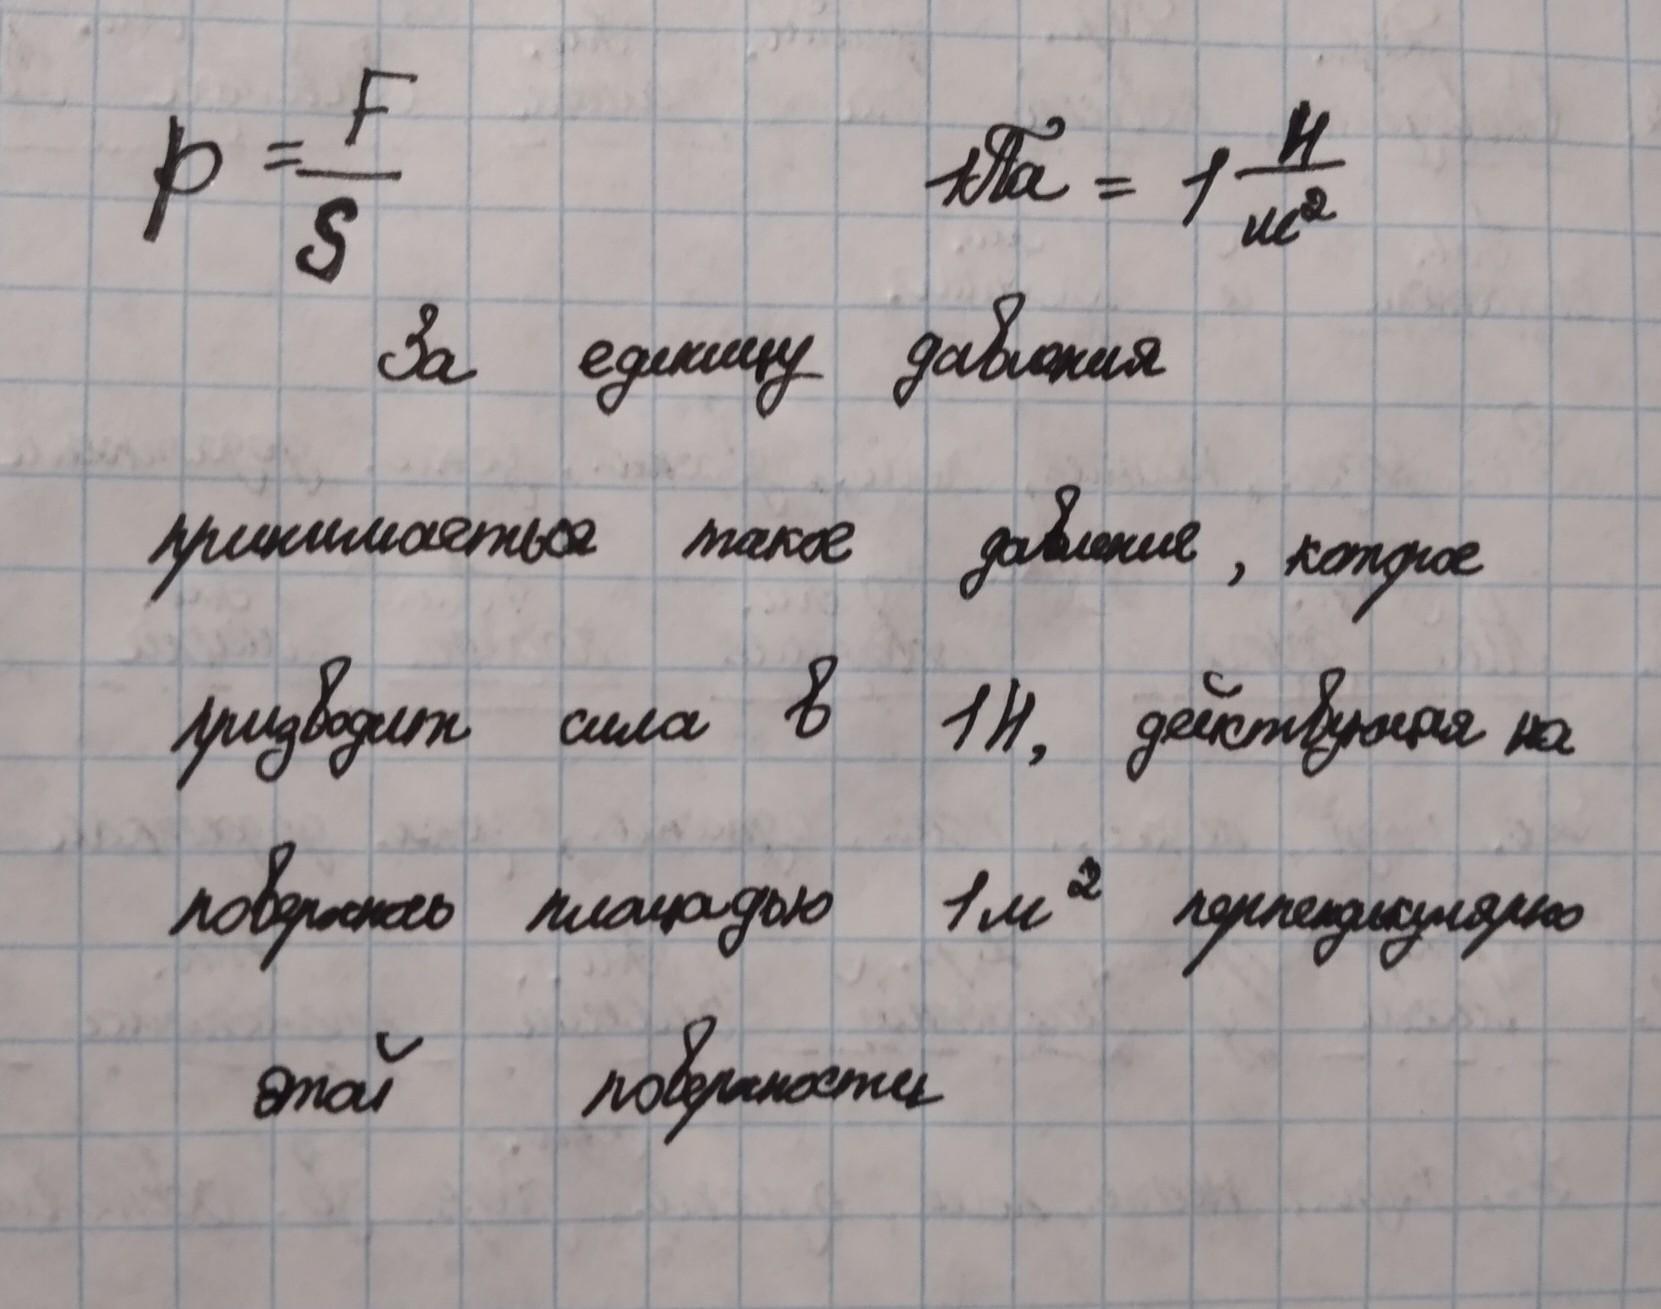 p = F/S 1Па = 1 Н/м²
За единицу давления
принимаеться такое давление, которое
призводит сила в 1Н, действующая на
поверхнось площадью 1м² перпендикулярно
этой поверхности